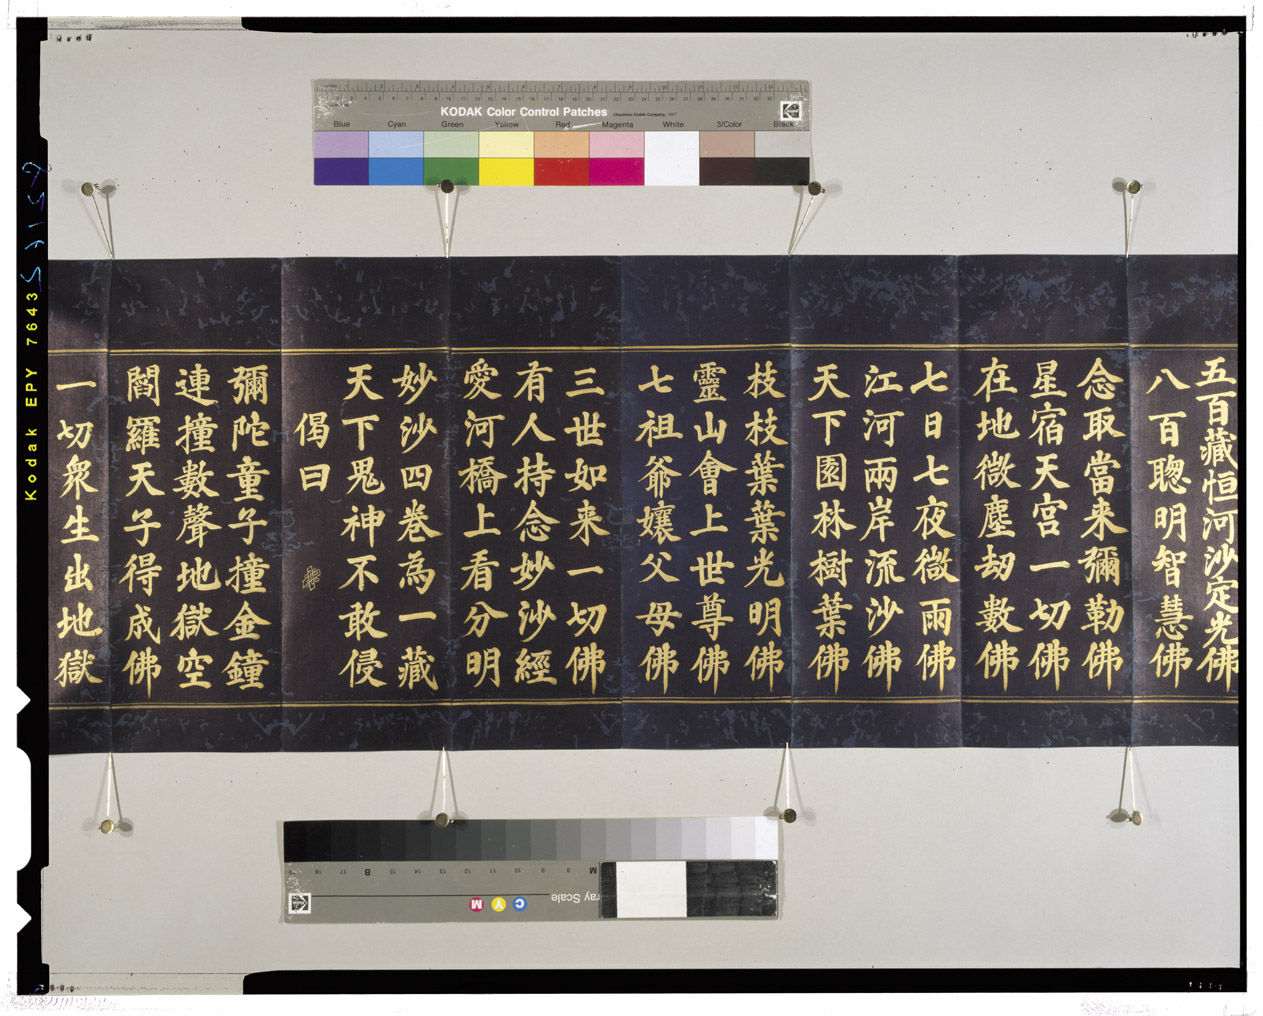 KODAK Color Control Patches
Blue Cyan Green Yellow Red Magenta White 3/Color Black
Kodak EPY 7643
五百藏恒河沙定光佛
八百聰明智慧佛
念取當来彌勒佛
星宿天宮一切佛
在地微塵刼數佛
七日七夜微雨佛
江河兩岸流沙佛
天下園林樹葉佛
枝枝葉葉光明佛
靈山會上世尊佛
七祖爺孃父母佛
三世如来一切佛
有人持念妙沙經
愛河橋上看分明
妙沙四卷為一藏
天下鬼神不敢侵
偈曰
彌陀童子撞金鐘
連撞數聲地獄空
閻羅天子得成佛
一切衆生出地獄
C Y M